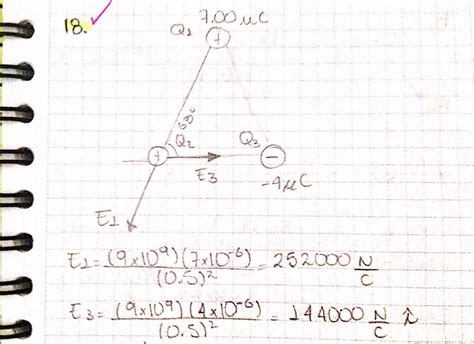 18.
7.00 μC
Q1
60°
Q2
Q3
E3
-4μC
E1
E1 = (9x10⁹)(7x10⁻⁶) / (0.5)² = 252000 N/C
E3 = (9x10⁹)(4x10⁻⁶) / (0.5)² = 144000 N/C î